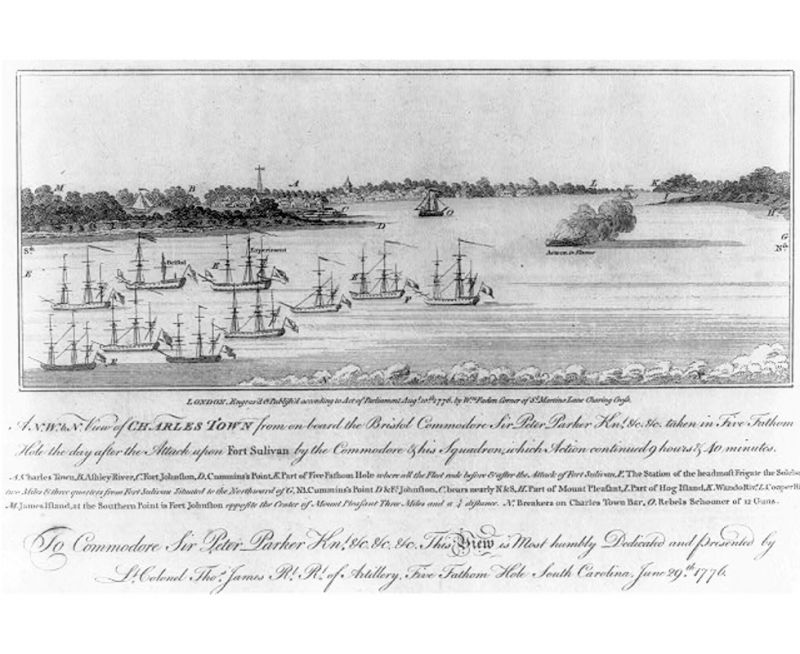 M
B
A
L
K
I
C
O
H
D
Sth
G
Nth
E
Bristol
Experiment
Acteon in Flames
E
E
F
E
N
LONDON, Engrav'd & Publish'd according to Act of Parliament Augt. 10th. 1776, by Wm. Faden Corner of St. Martins Lane Charing Cross.
A N.W.b.N. View of CHARLES TOWN from on board the Bristol Commodore Sir Peter Parker Knt. &c. &c. taken in Five Fathom
Hole the day after the Attack upon Fort Sulivan by the Commodore & his Squadron, which Action continued 9 hours & 40 minutes.
A, Charles Town, B, Ashley River, C, Fort Johnston, D, Cummins's Point, E, Part of Five Fathom Hole where all the Fleet rode before & after the Attack of Fort Sulivan, F, The Station of the headmost Frigate the Solebay
two Miles & three quarters from Fort Sulivan Situated to the Northward of G, NB, Cummins's Point D & Ft. Johnston, C, bears nearly N & S, H, Part of Mount Pleasant, I, Part of Hog Island, K, Wando Rivr. L, Cooper Ri
M, James Island, at the Southern Point is Fort Johnston opposite the Center of Mount Pleasant Three Miles and a ¼ distance. N, Breakers on Charles Town Bar, O, Rebels Schooner of 12 Guns.
To Commodore Sir Peter Parker Knt. &c. &c. &c. This View is Most humbly Dedicated and Presented by
Lt. Colonel Thos. James Rl. Rt. of Artillery, Five Fathom Hole South Carolina, June 29th. 1776.